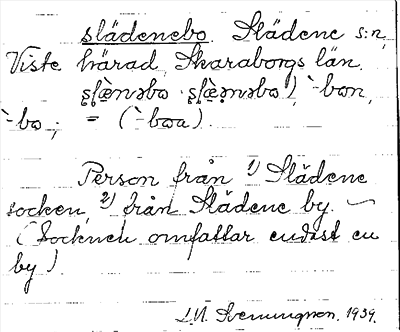 slädenebo. Slädene s:n,
Viste härad, Skaraborgs län.
ʂɭæ̀nəbo ʂɭæ̀ənəbo), `-bon,
`-bo; = (`-boa).
Person från 1) Slädene
socken, 2) från Slädene by. ~
(Socknen omfattar endast en
by).
1939.